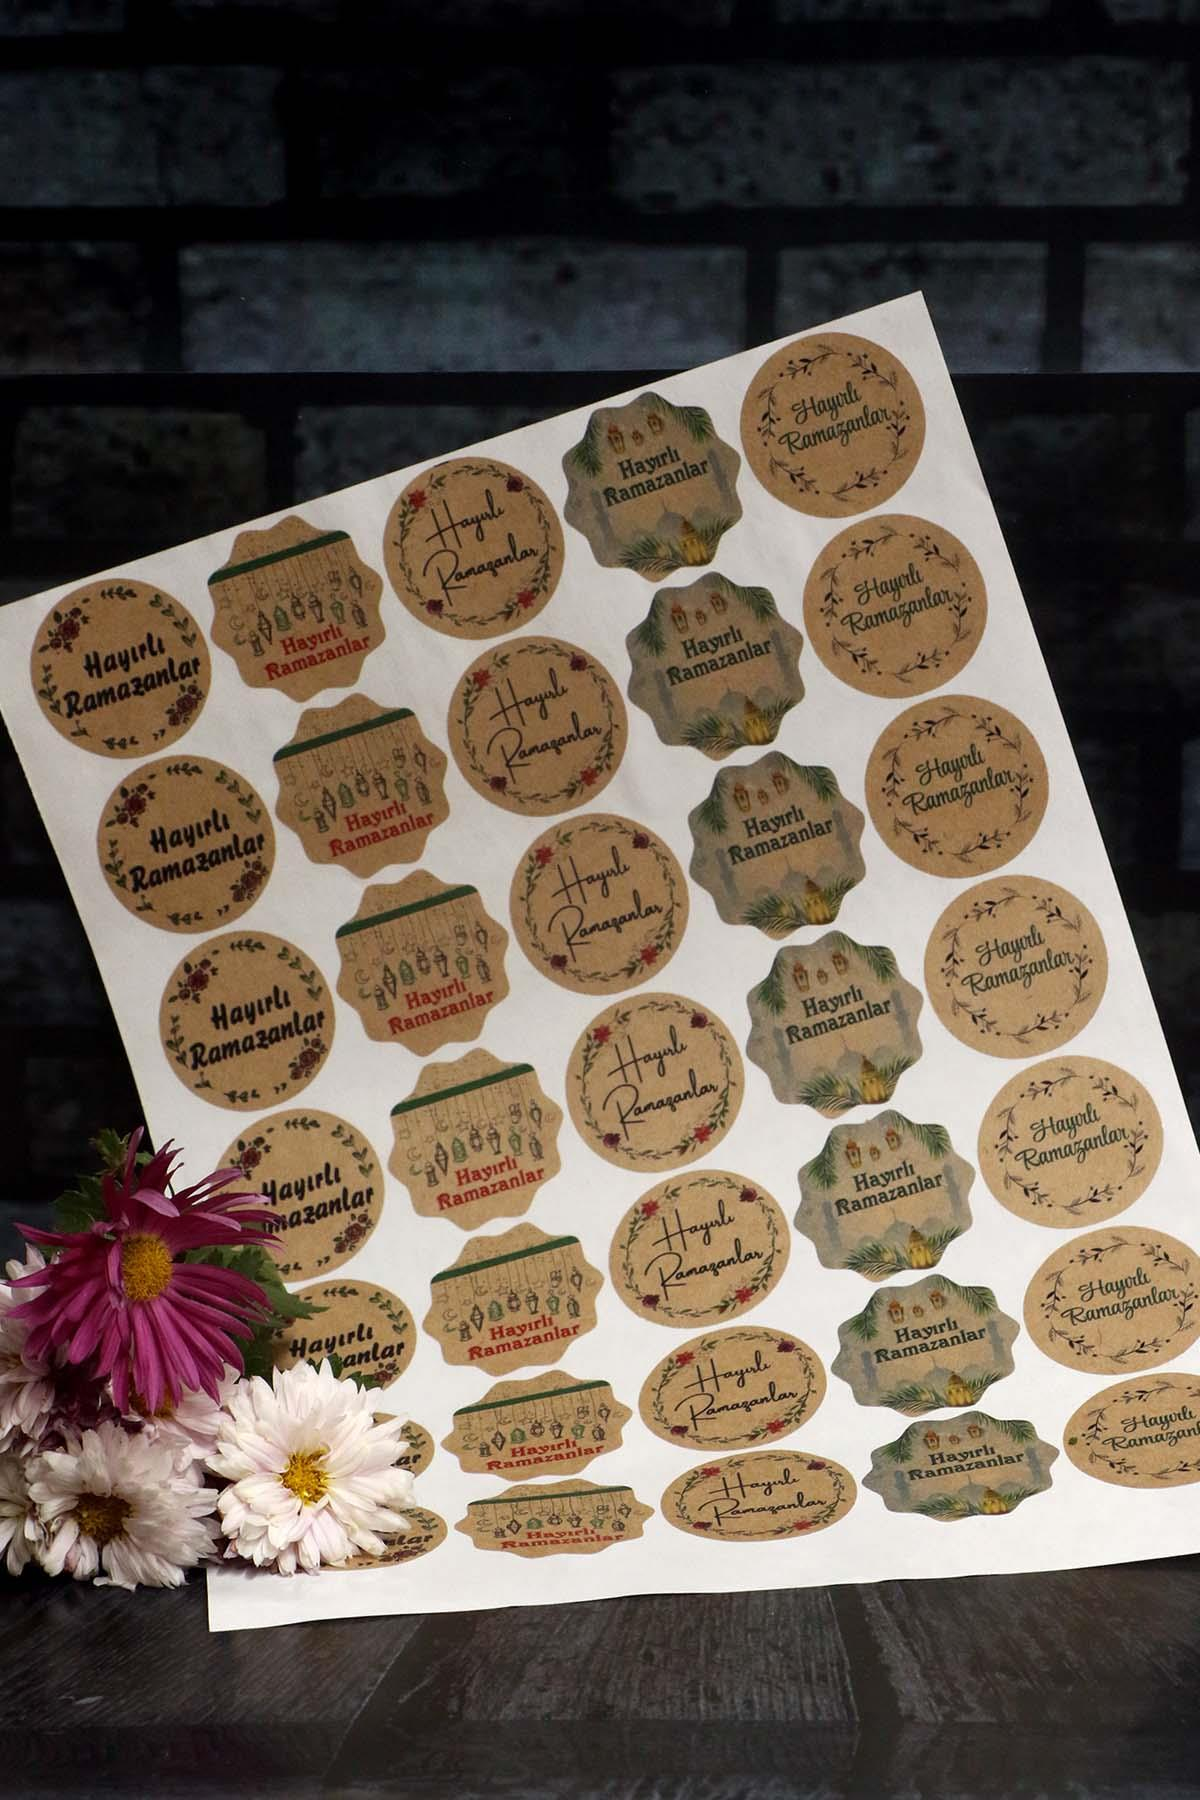 Hayırlı
Ramazanlar
Hayırlı
Ramazanlar
Hayırlı
Ramazanlar
Hayırlı
mazanlar
Hayırlı
Hayırlı
Ramazanlar
Hayırlı
Ramazanlar
Hayırlı
Ramazanlar
Hayırlı
Ramazanlar
Hayırlı
Ramazanlar
Hayırlı
Ramazanlar
Hayırlı
Ramazanlar
Hayırlı
Ramazanlar
Hayırlı
Ramazanlar
Hayırlı
Ramazanlar
Hayırlı
Ramazanlar
Hayırlı
Ramazanlar
Hayırlı
Ramazanlar
Hayırlı
Ramazanlar
Hayırlı
Ramazanlar
Hayırlı
Ramazanlar
Hayırlı
Ramazanlar
Hayırlı
Ramazanlar
Hayırlı
Ramazanlar
Hayırlı
Ramazanlar
Hayırlı
Ramazanlar
Hayırlı
Ramazanlar
Hayırlı
Ramazanlar
Hayırlı
Ramazanlar
Hayırlı
Ramazanlar
Hayırlı
Ramazanlar
Hayırlı
Ramazanlar
Hayırlı
Ramazanlar